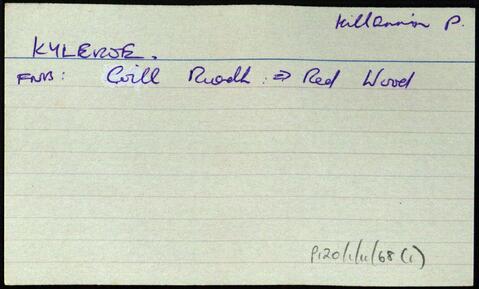 Killannin P.
KYLEROE.
FNB: Coill Ruadh ⇒ Red Wood
P120/1/11/68(1)